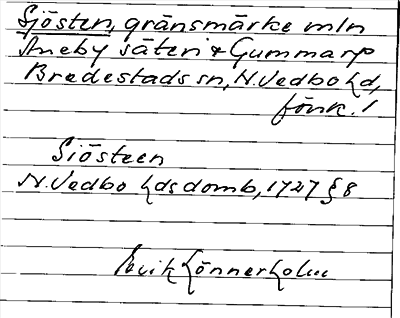 Sjösten, gränsmärke mln
Aneby säteri & Gummarp
Bredestads sn, N. Vedbo hd,
Jönk. l
Siösteen
N. Vedbo hds domb, 1727 § 8
Erik Lönnerholm